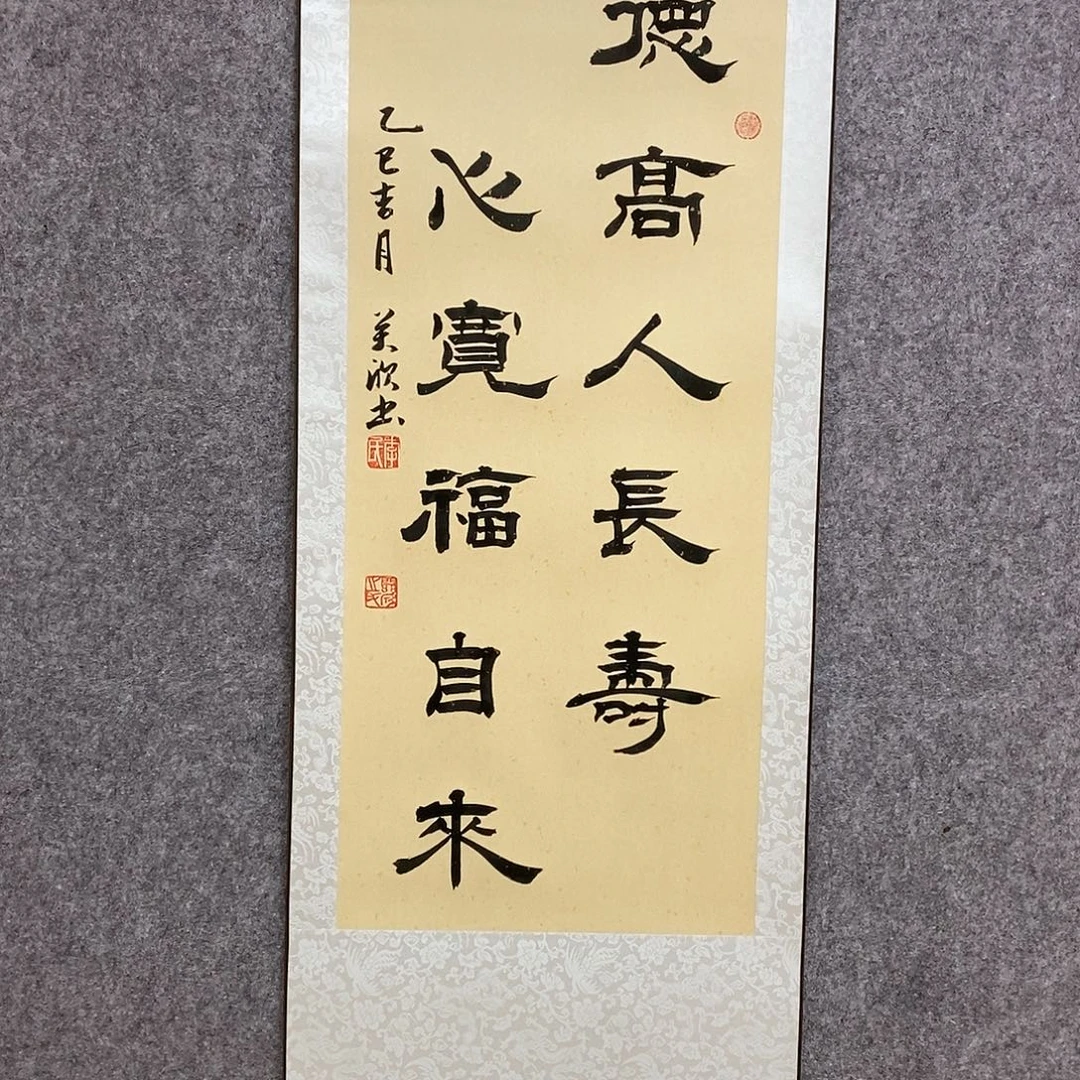 德高人長壽
心寬福自來
乙巳吉月 美欣书